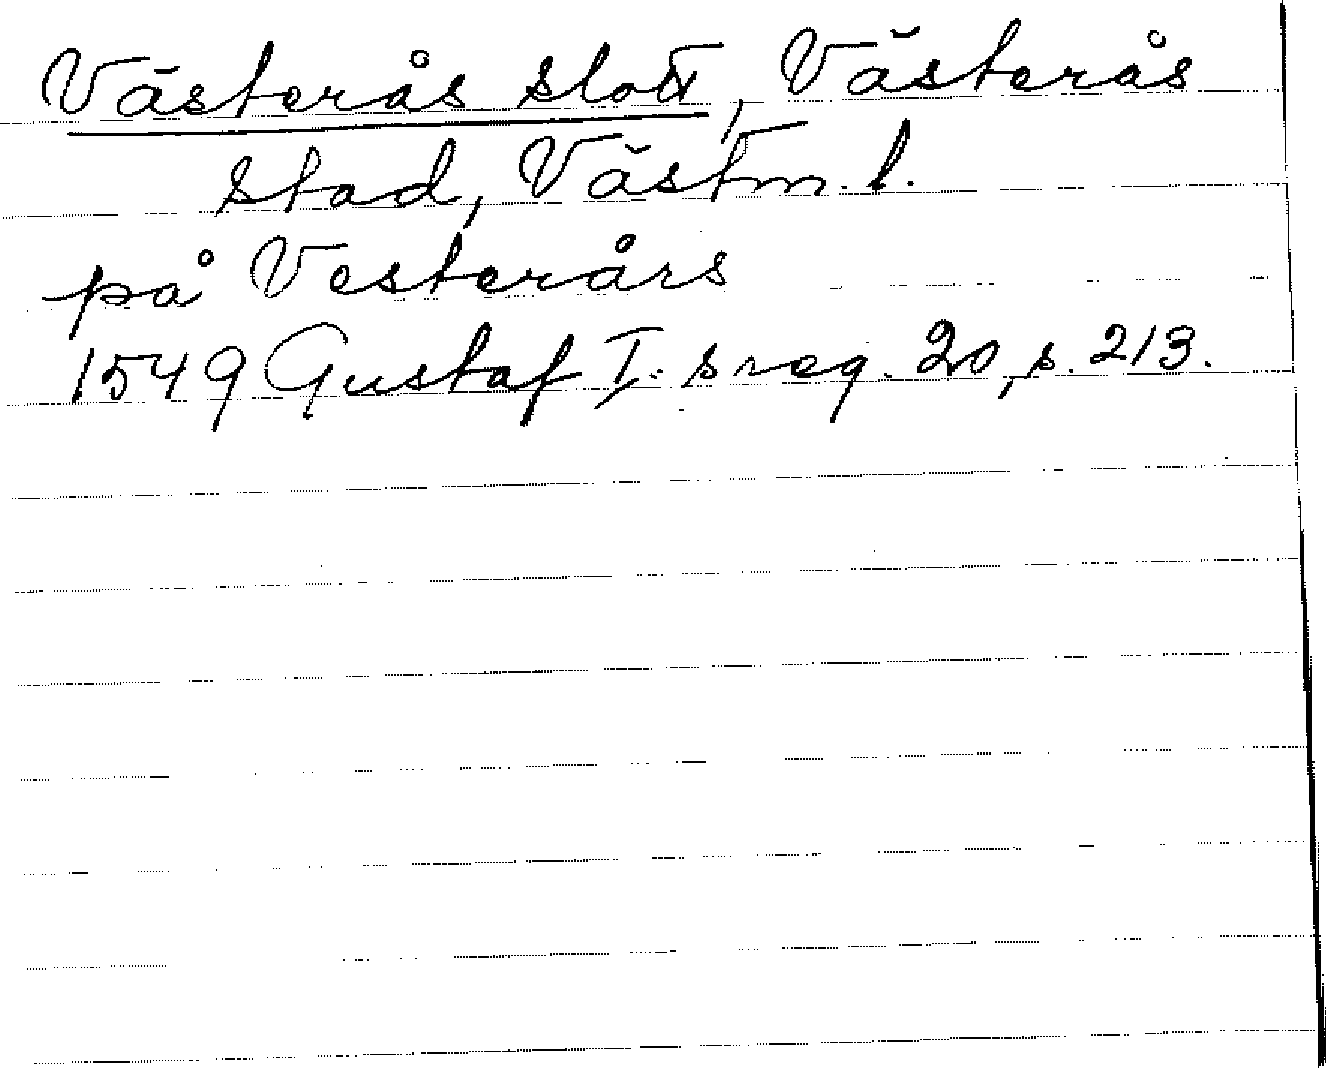 Västerås slott, Västerås
stad, Västm. l.
på Vesterårs
1549 Gustaf I:sreg. 20, s. 213.